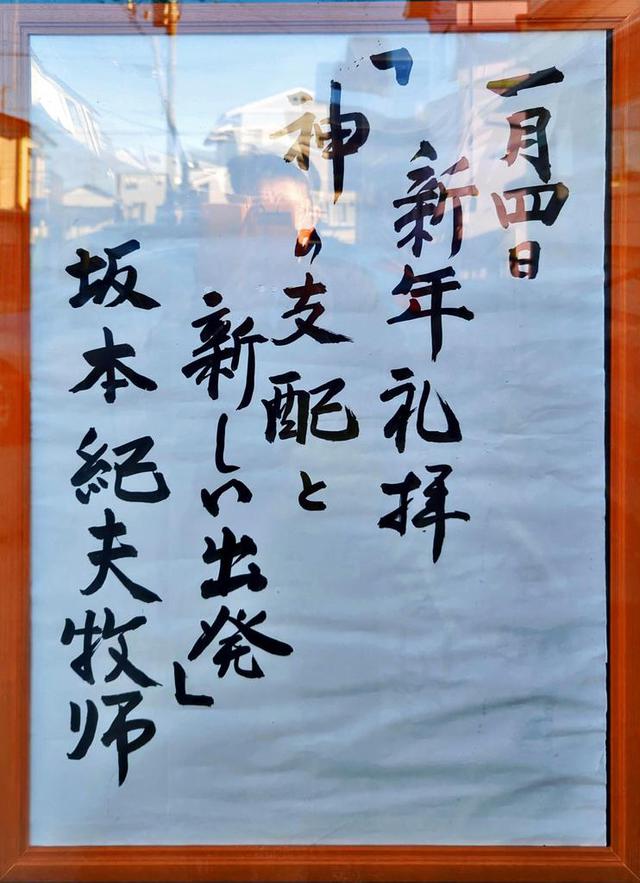 一月四日
新年礼拝
「神の支配と
新しい出発」
坂本紀夫牧師